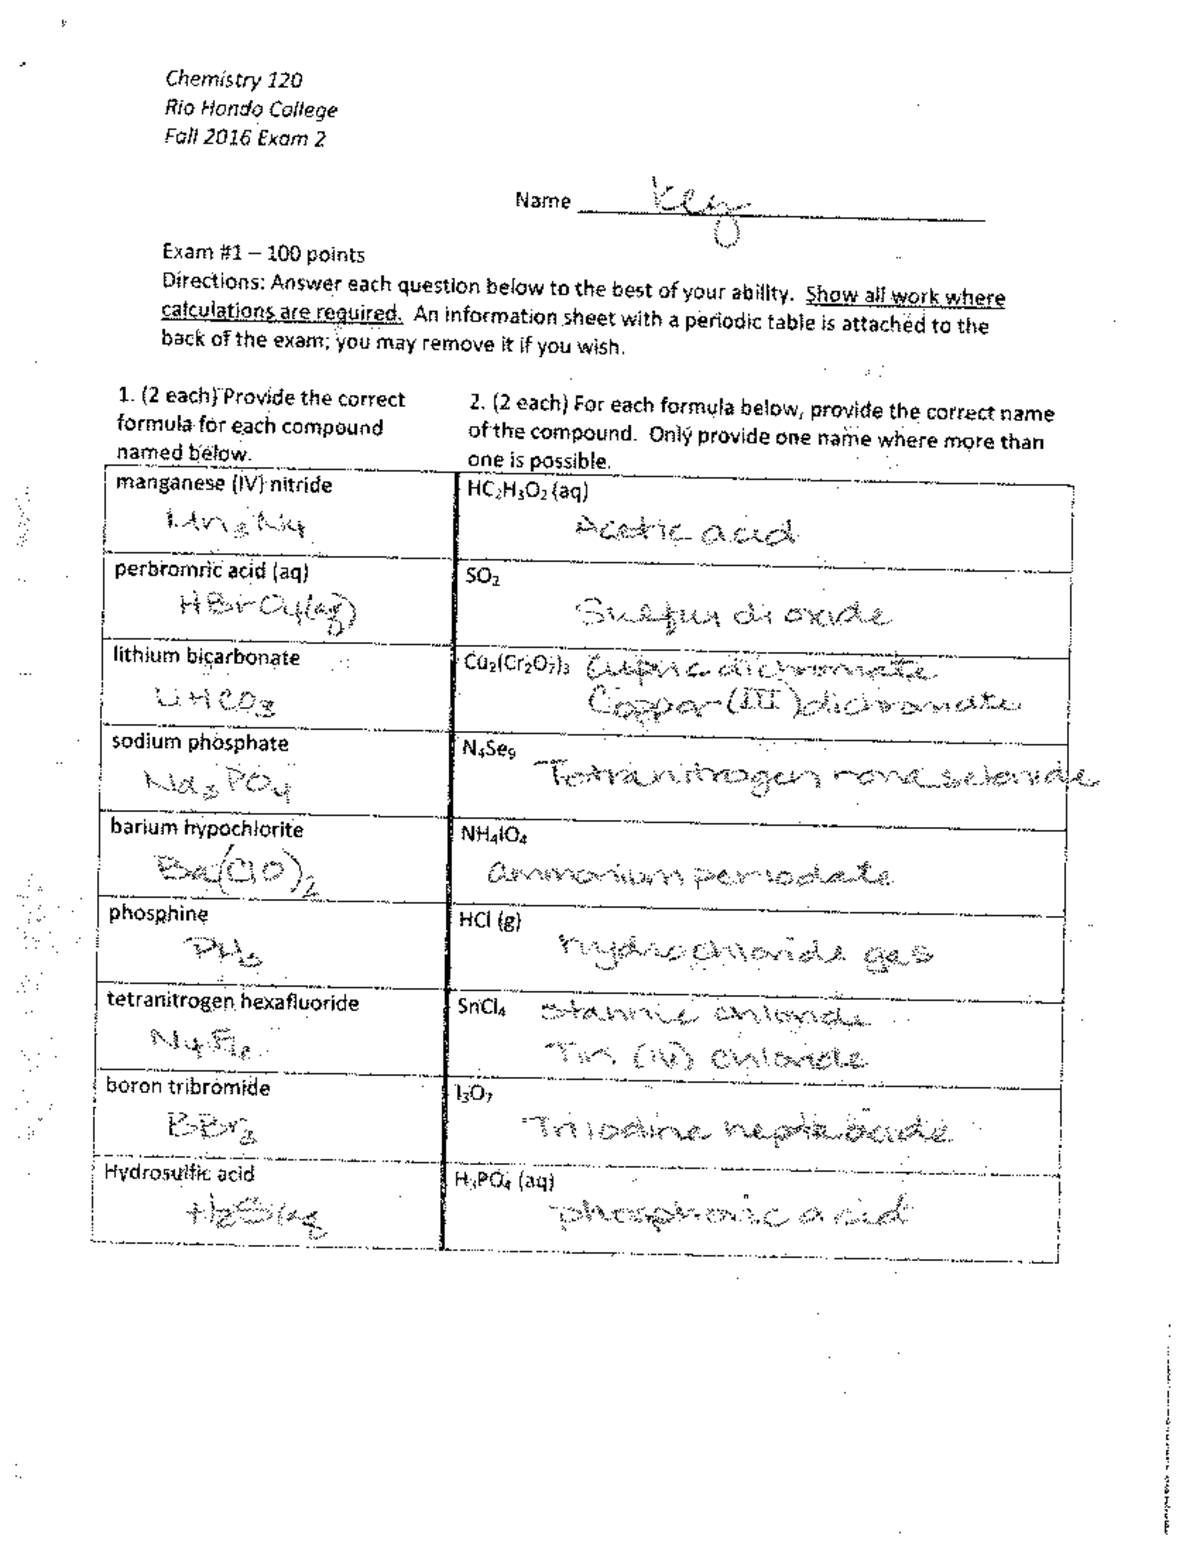 Chemistry 120
Rio Hondo College
Fall 2016 Exam 2
Name Key
Exam #1 – 100 points
Directions: Answer each question below to the best of your ability. Show all work where
calculations are required. An information sheet with a periodic table is attached to the
back of the exam; you may remove it if you wish.
1. (2 each) Provide the correct
formula for each compound
named below.
2. (2 each) For each formula below, provide the correct name
of the compound. Only provide one name where more than
one is possible.
manganese (IV) nitride
Mn₃N₄
HC₂H₃O₂ (aq)
Acetic acid
perbromric acid (aq)
HBrO₄(aq)
SO₂
Sulfur dioxide
lithium bicarbonate
LiHCO₃
Cu₂(Cr₂O₇)₃ Cupric dichromate
Copper (III) dichromate
sodium phosphate
Na₃PO₄
N₄Se₉
Tetranitrogen nonaselenide
barium hypochlorite
Ba(ClO)₂
NH₄IO₄
ammonium periodate
phosphine
PH₃
HCl (g)
hydrochloride gas
tetranitrogen hexafluoride
N₄F₆
SnCl₄ Stannic chloride
Tin (IV) chloride
boron tribromide
BBr₃
I₃O₇
Triiodine heptaoxide
Hydrosulfic acid
H₂S(aq
H₃PO₄ (aq)
phosphoric acid